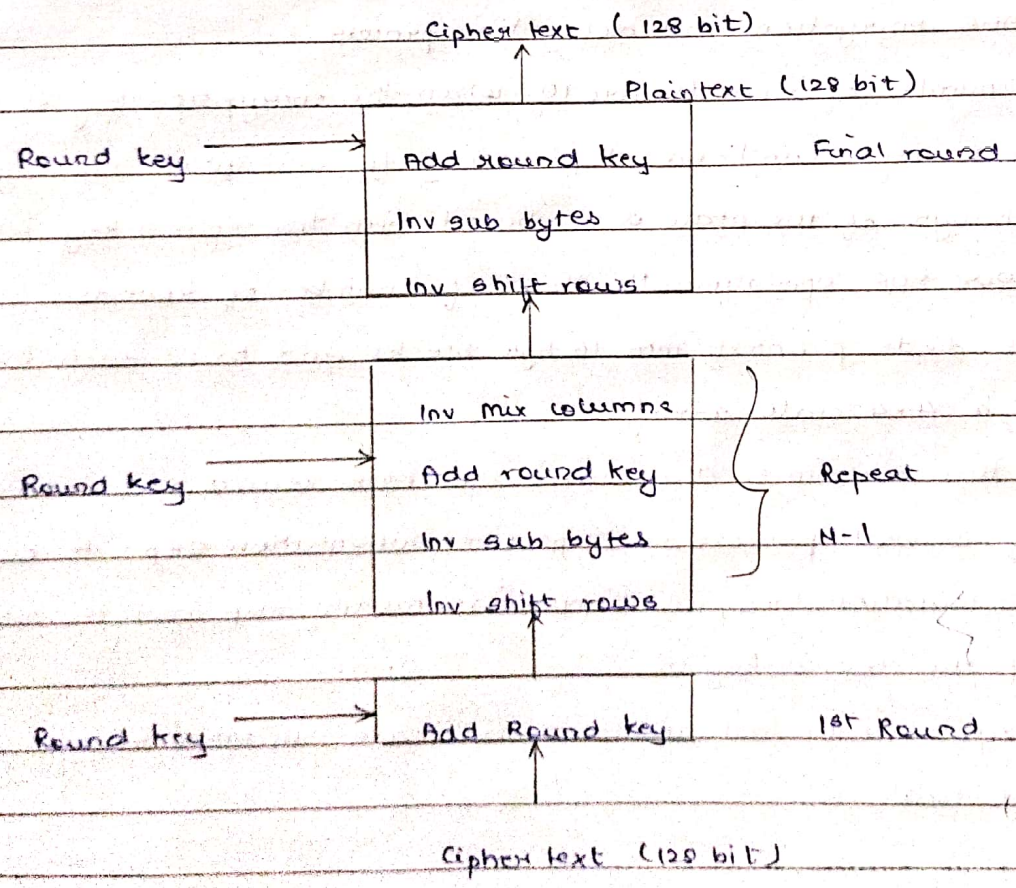 Cipher text (128 bit)
Plaintext (128 bit)
Round key Add round key Final round
Inv sub bytes
Inv shift rows
Inv mix columns
Round key Add round key Repeat
Inv sub bytes N-1
Inv shift rows
Round key Add Round key 1st Round
Cipher text (128 bit)